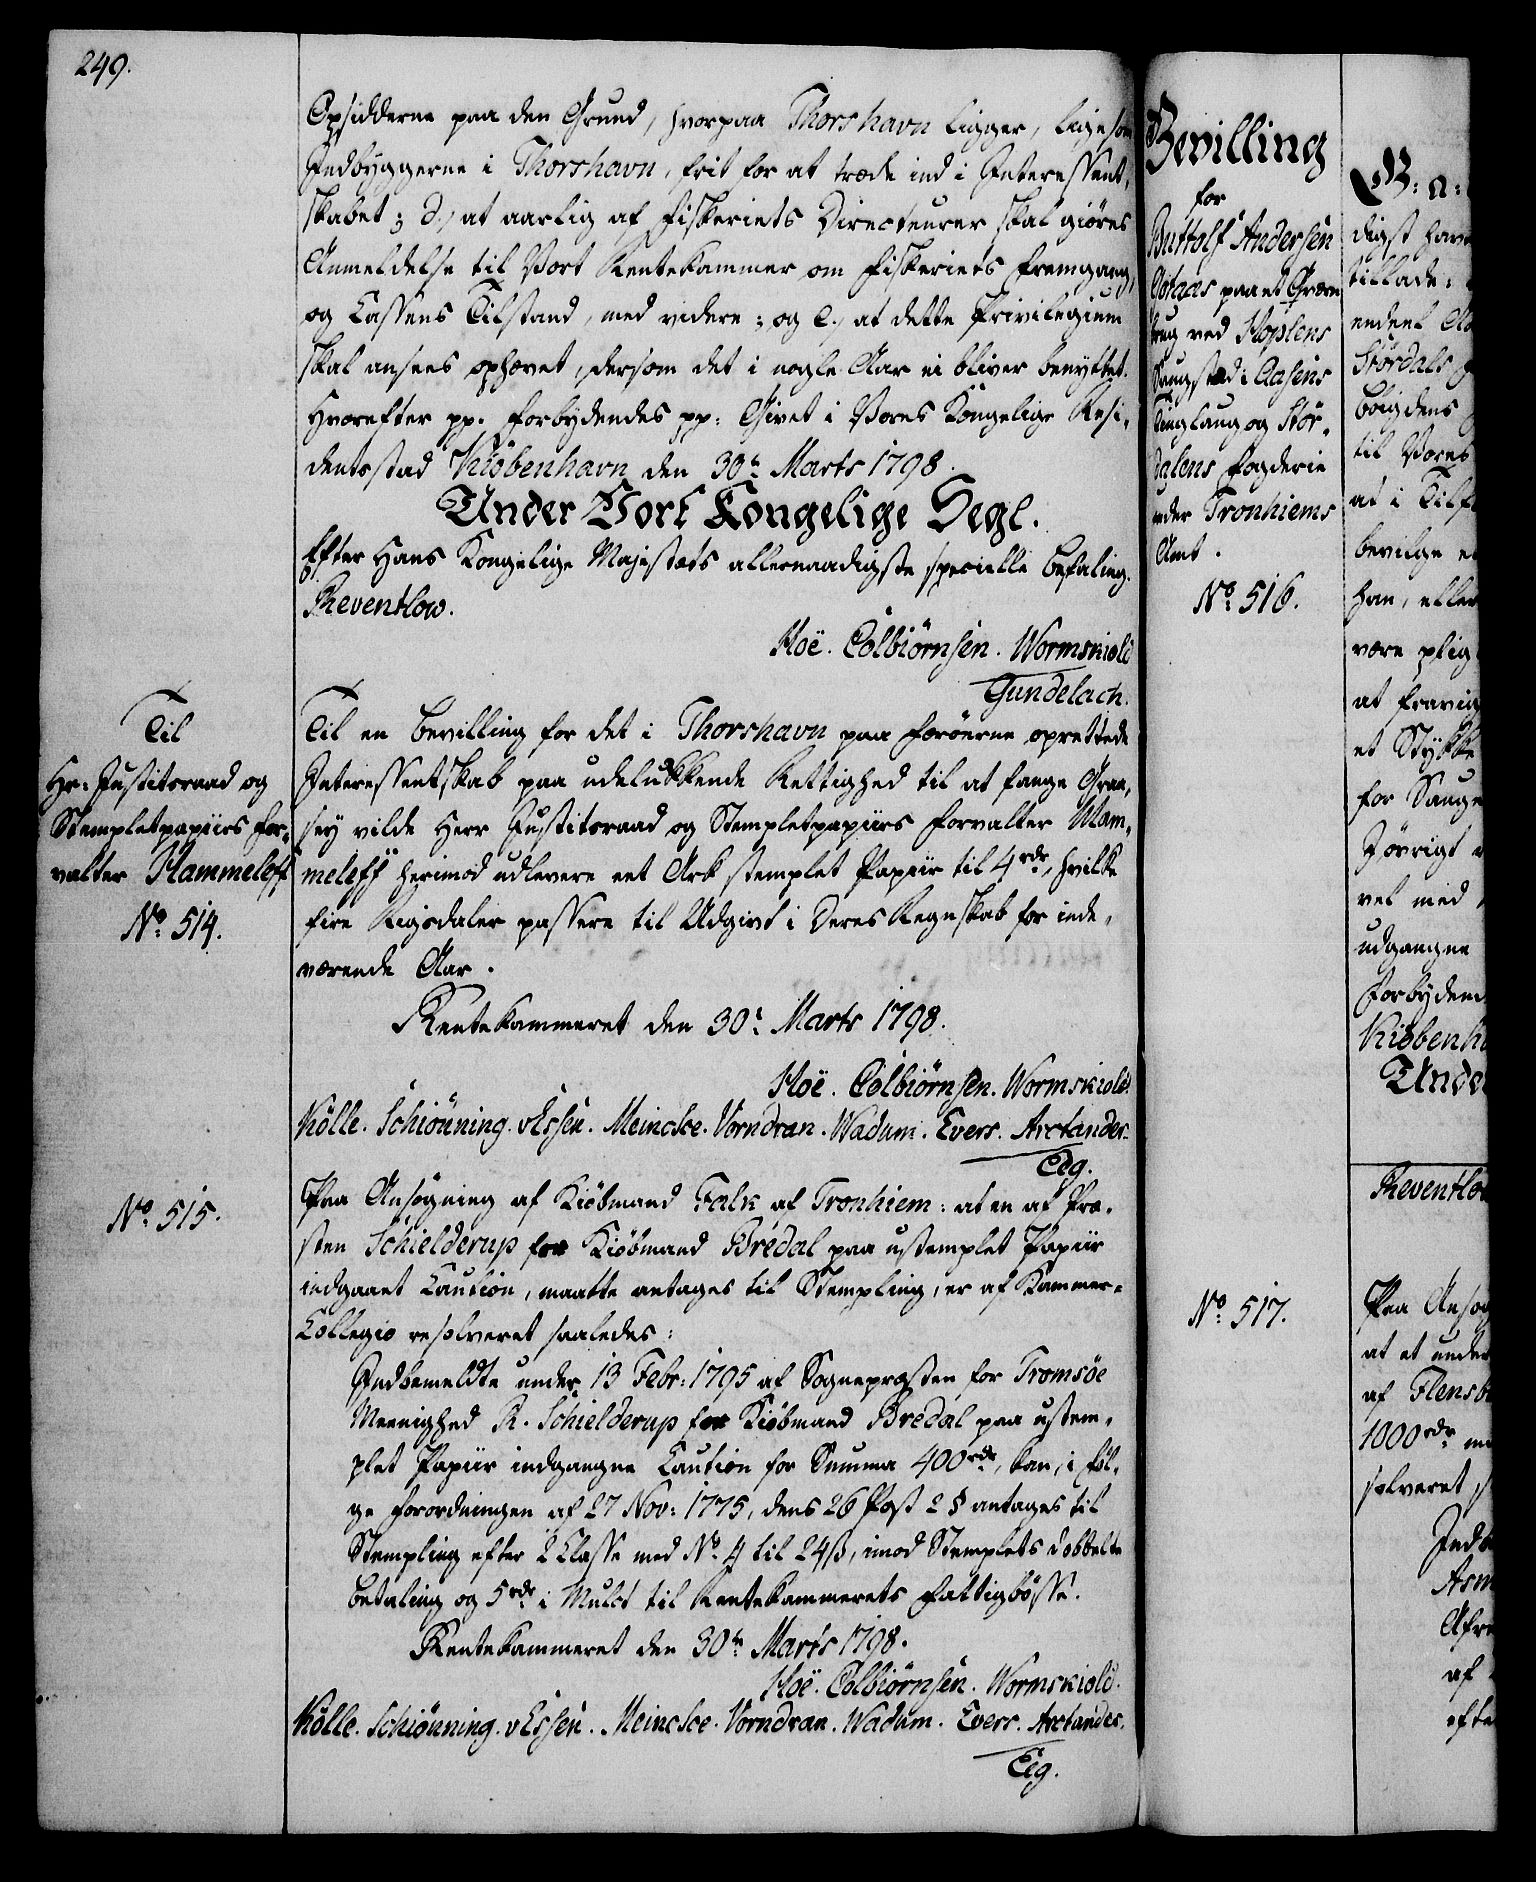 249.
Opsidderne paa den Grund, hvorpaa Thorshavn ligger, ligesom
Indbyggerne i Thorshavn, frit for at træde ind i Interessent-
skabet; d., at aarlig af Fiskeriets Directeurer skal giøres
Anmeldelse til Vort Rentekammer om Fiskeriets Fremgang,
og Cassens Tilstand, med videre; og e., at dette Privilegium
skal ansees ophævet, dersom det i nogle Aar ei bliver benyttet.
Hvorefter pp. Forbydendes pp: Givet i Vores Kongelige Resi-
dentsstad Kiøbenhavn den 30te Marts 1798.
Under Vort Kongelige Segl.
Efter Hans Kongelige Majestæts allernaadigste specielle Befaling.
Reventlow.
Hoë. Colbiørnsen. Wormskiold
Gundelach.
Til
Hr: Justitsraad og
Stempletpapiirs For-
valter Hammeleff
No. 514.
Til en Bevilling for det i Thorshavn paa Færøerne oprettede
Interessentskab paa udelukkende Rettighed til at fange Graa-
sey vilde Herr Justitsraad og Stempletpapiirs Forvalter Ham-
meleff herimod udlevere eet Ark stemplet Papiir til 4 rdr, hvilke
fire Rigsdaler passere til Udgivt i Deres Regnskab for inde-
værende Aar.
Rentekammeret den 30te Marts 1798.
Hoë. Colbiørnsen. Wormskiold.
Kølle. Schiønning. v Essen. Meincke. Vorndran. Wadum. Evers. Arctander.
No. 515.
Paa Ansøgning af Kiøbmand Falk af Tronhiem: at en af Præ-
sten Schielderup for Kiøbmand Bredal paa ustemplet Papiir
indgaaet Caution, maatte antages til Stempling, er af Kammer-
Collegio resolveret saaledes:
Indbemeldte under 13 Febr: 1795 af Sognepræsten for Tromsøe
Meenighed R. Schielderup for Kiøbmand Bredal paa ustem-
plet Papiir indgangne Caution for Summa 400 rdr, kan, i Føl-
ge Forordningen af 27 Nov: 1775, dens 26 Post 2 § antages til
Stempling efter 2 Classe med No. 4 til 24 ß, imod Stemplets dobbelte
Betaling og 5 rdr i Mulct til Rentekammerets Fattigbøsse.
Rentekammeret den 30te Marts 1798.
Hoë. Colbiørnsen. Wormskiold.
Kølle. Schiønning. v Essen. Meincke. Vorndran. Wadum. Evers. Arctander.
Bevilling
for
Buttolf Andersen
paa et Qværn-
brug ved Hoplens
Saugsted i Aasens
Tinglaug og Stør-
dalens Fogderie
under Tronhiems
Amt.
No. 516.
No. 517.
G: a:
digst
tillade:
endeel
Størdals
Bøigdens
til Vores
at i
bevilge
han, eller
være
at
et Stykke
for
Iøvrigt
vet med
udgangne
Forbyden
Kiøbenh
Under
Reventlow
Paa Ansøg
at et under
af Flensb
1000 rdr
solveret
Indb
Asm
af
efter